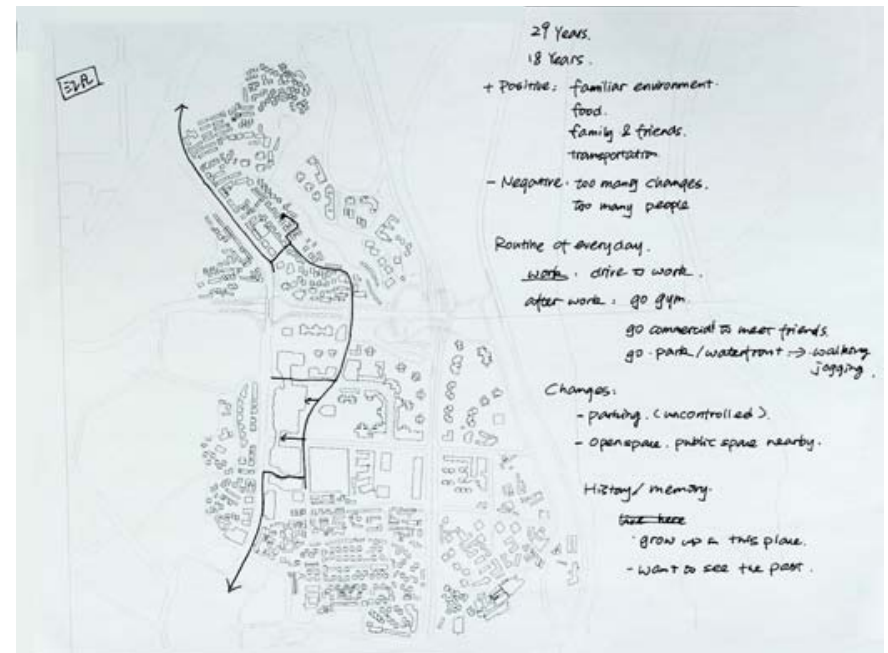 29 Years.
18 Years.
+ Positive: familiar environment.
food.
family & friends.
transportation
- Negative. too many changes.
too many people
Routine of everyday.
work. drive to work.
after work: go gym.
go commercial to meet friends.
go park/waterfront → walking
jogging.
Changes:
- parking. (uncontrolled).
- openspace. public space nearby.
History/memory.
live here
· grow up in this place.
- want to see the past.